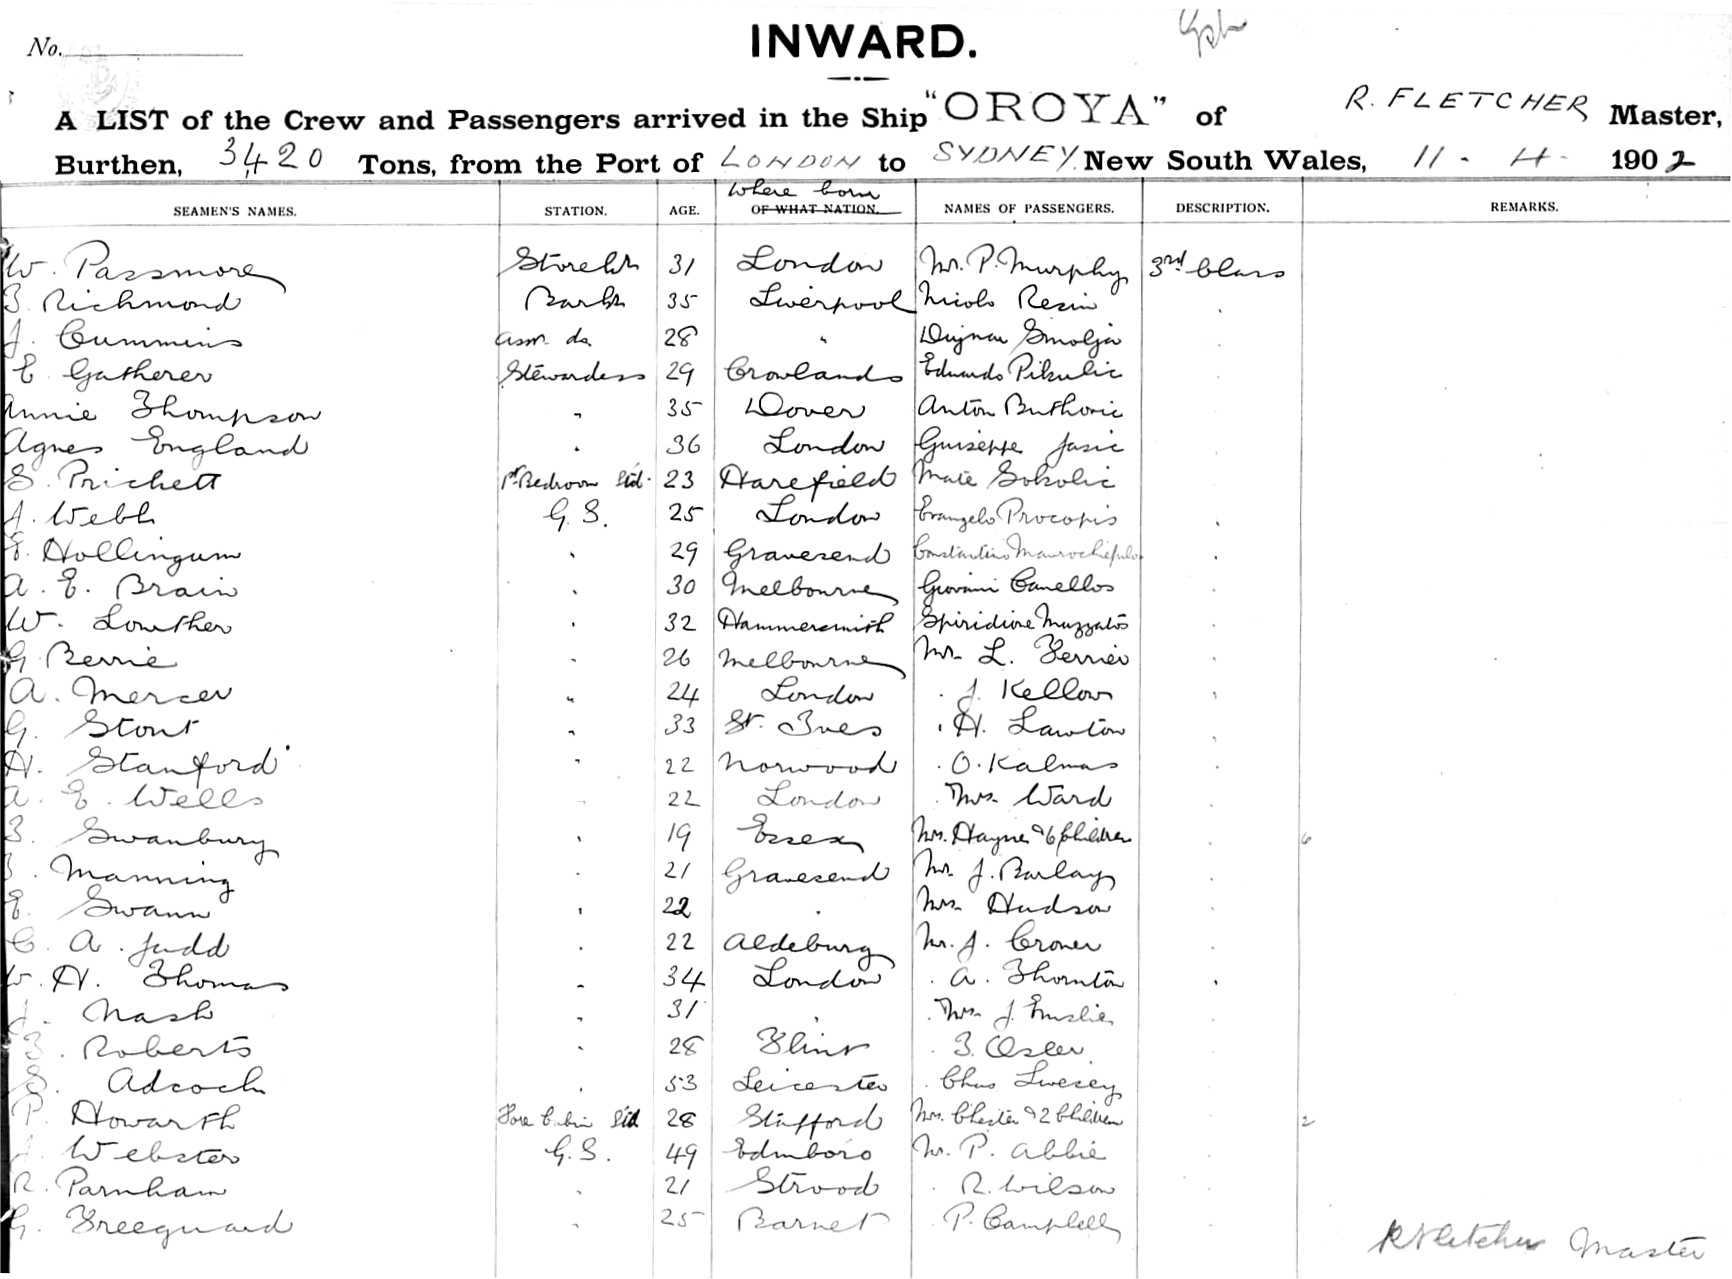 No.
INWARD.
A LIST of the Crew and Passengers arrived in the Ship "OROYA" of R. FLETCHER Master,
Burthen, 3420 Tons, from the Port of LONDON to SYDNEY New South Wales, 11 - 4 - 1902
where born
SEAMEN'S NAMES. STATION. AGE. OF WHAT NATION. NAMES OF PASSENGERS. DESCRIPTION. REMARKS.
W. Passmore 31 London Mr. P. Murphy 3rd Class
Richmond 35 Liverpool Nicolo Resin
J. Cummins do. 28 "
E Gatherer Stewardess 29 Crowlands Eduardo Pikulic
Annie Thompson " 35 Dover Anton Buthoric
Agnes England " 36 London Guiseppe Jasic
S. Prichett Bedroom Std. 23 Harefield Mate Sokolic
J. Webb G. S. 25 London Evangelo Procopis
Hollingum " 29 Gravesend Constantino
A. E. Brain " 30 Melbourne Giovani Canellos
W. Lowther " 32 Hammersmith Spiridione Muzzatos
G Berrie " 26 Melbourne Mr. L. Ferrier
A. Mercer " 24 London " J. Kellow
G. Stout " 33 St. Ives " H. Lawton
H. Stanford " 22 Norwood " O. Kalmas
A. E. Wells " 22 London " Mrs. Ward
Swanbury " 19 Essex Mrs. Hayne & 6 Children 6
Manning " 21 Gravesend Mr. J. Barlay
E. Swann " 22 " Mrs. Hudson
C. A. Judd " 22 Aldeburg Mr. J. Croner
W. H. Thomas " 34 London " A. Thornton
J. Nash " 31 " " Mrs. J. Emslie
Roberts " 28 Flint "
S. Adcock " 53 Leicester " Chas Livesey
P. Howarth Fore Cabin Std 28 Stafford Mrs. Chester & 2 Children 2
J. Webster G. S. 49 Edinboro Mr. P. Abbie
R. Parnham " 21 Strood " R. Wilson
G. Freeguard " 25 Barnet " P. Campbell
R Fletcher Master